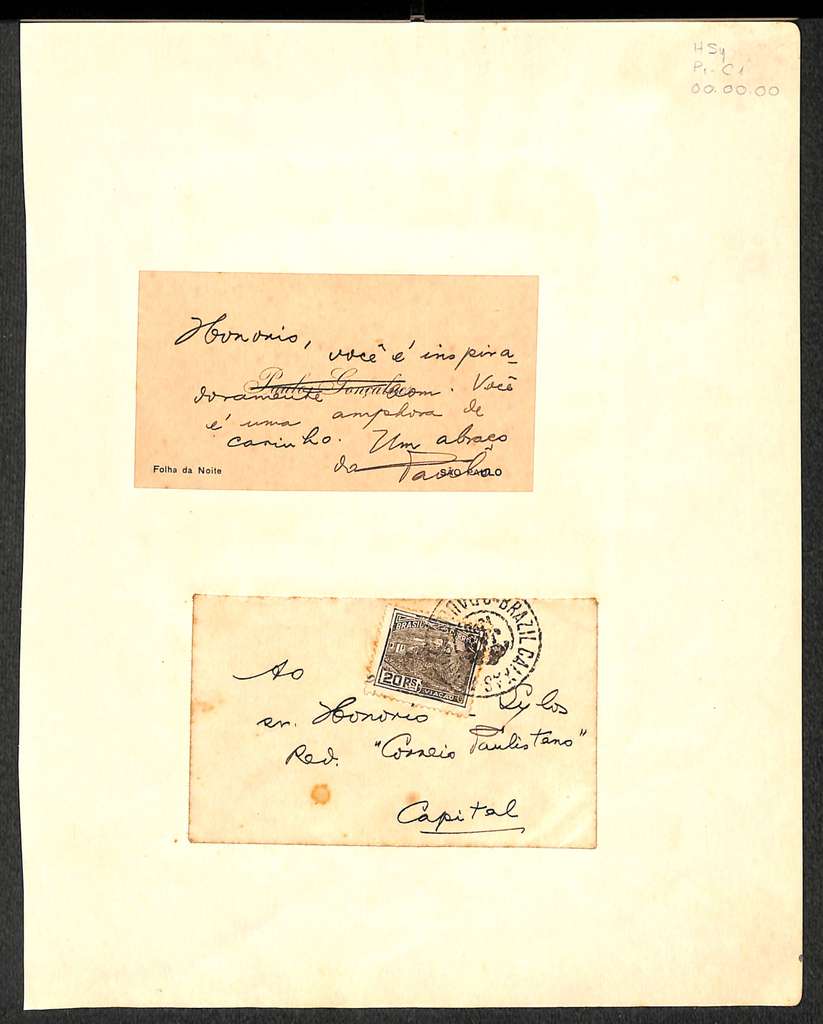 HSy
Pi-C1
00.00.00
Honorio, você é inspira-
doramente bom. Você
Paulo Gonçalves
é uma amphora de
carinho. Um abraço
do Paulo
Folha da Noite
SÃO PAULO
BRASIL CORREIO
20 RS
VIAÇÃO
BRAZIL CAIXAS
Ao
sr. Honorio - Sylos
Red. "Correio Paulistano"
Capital